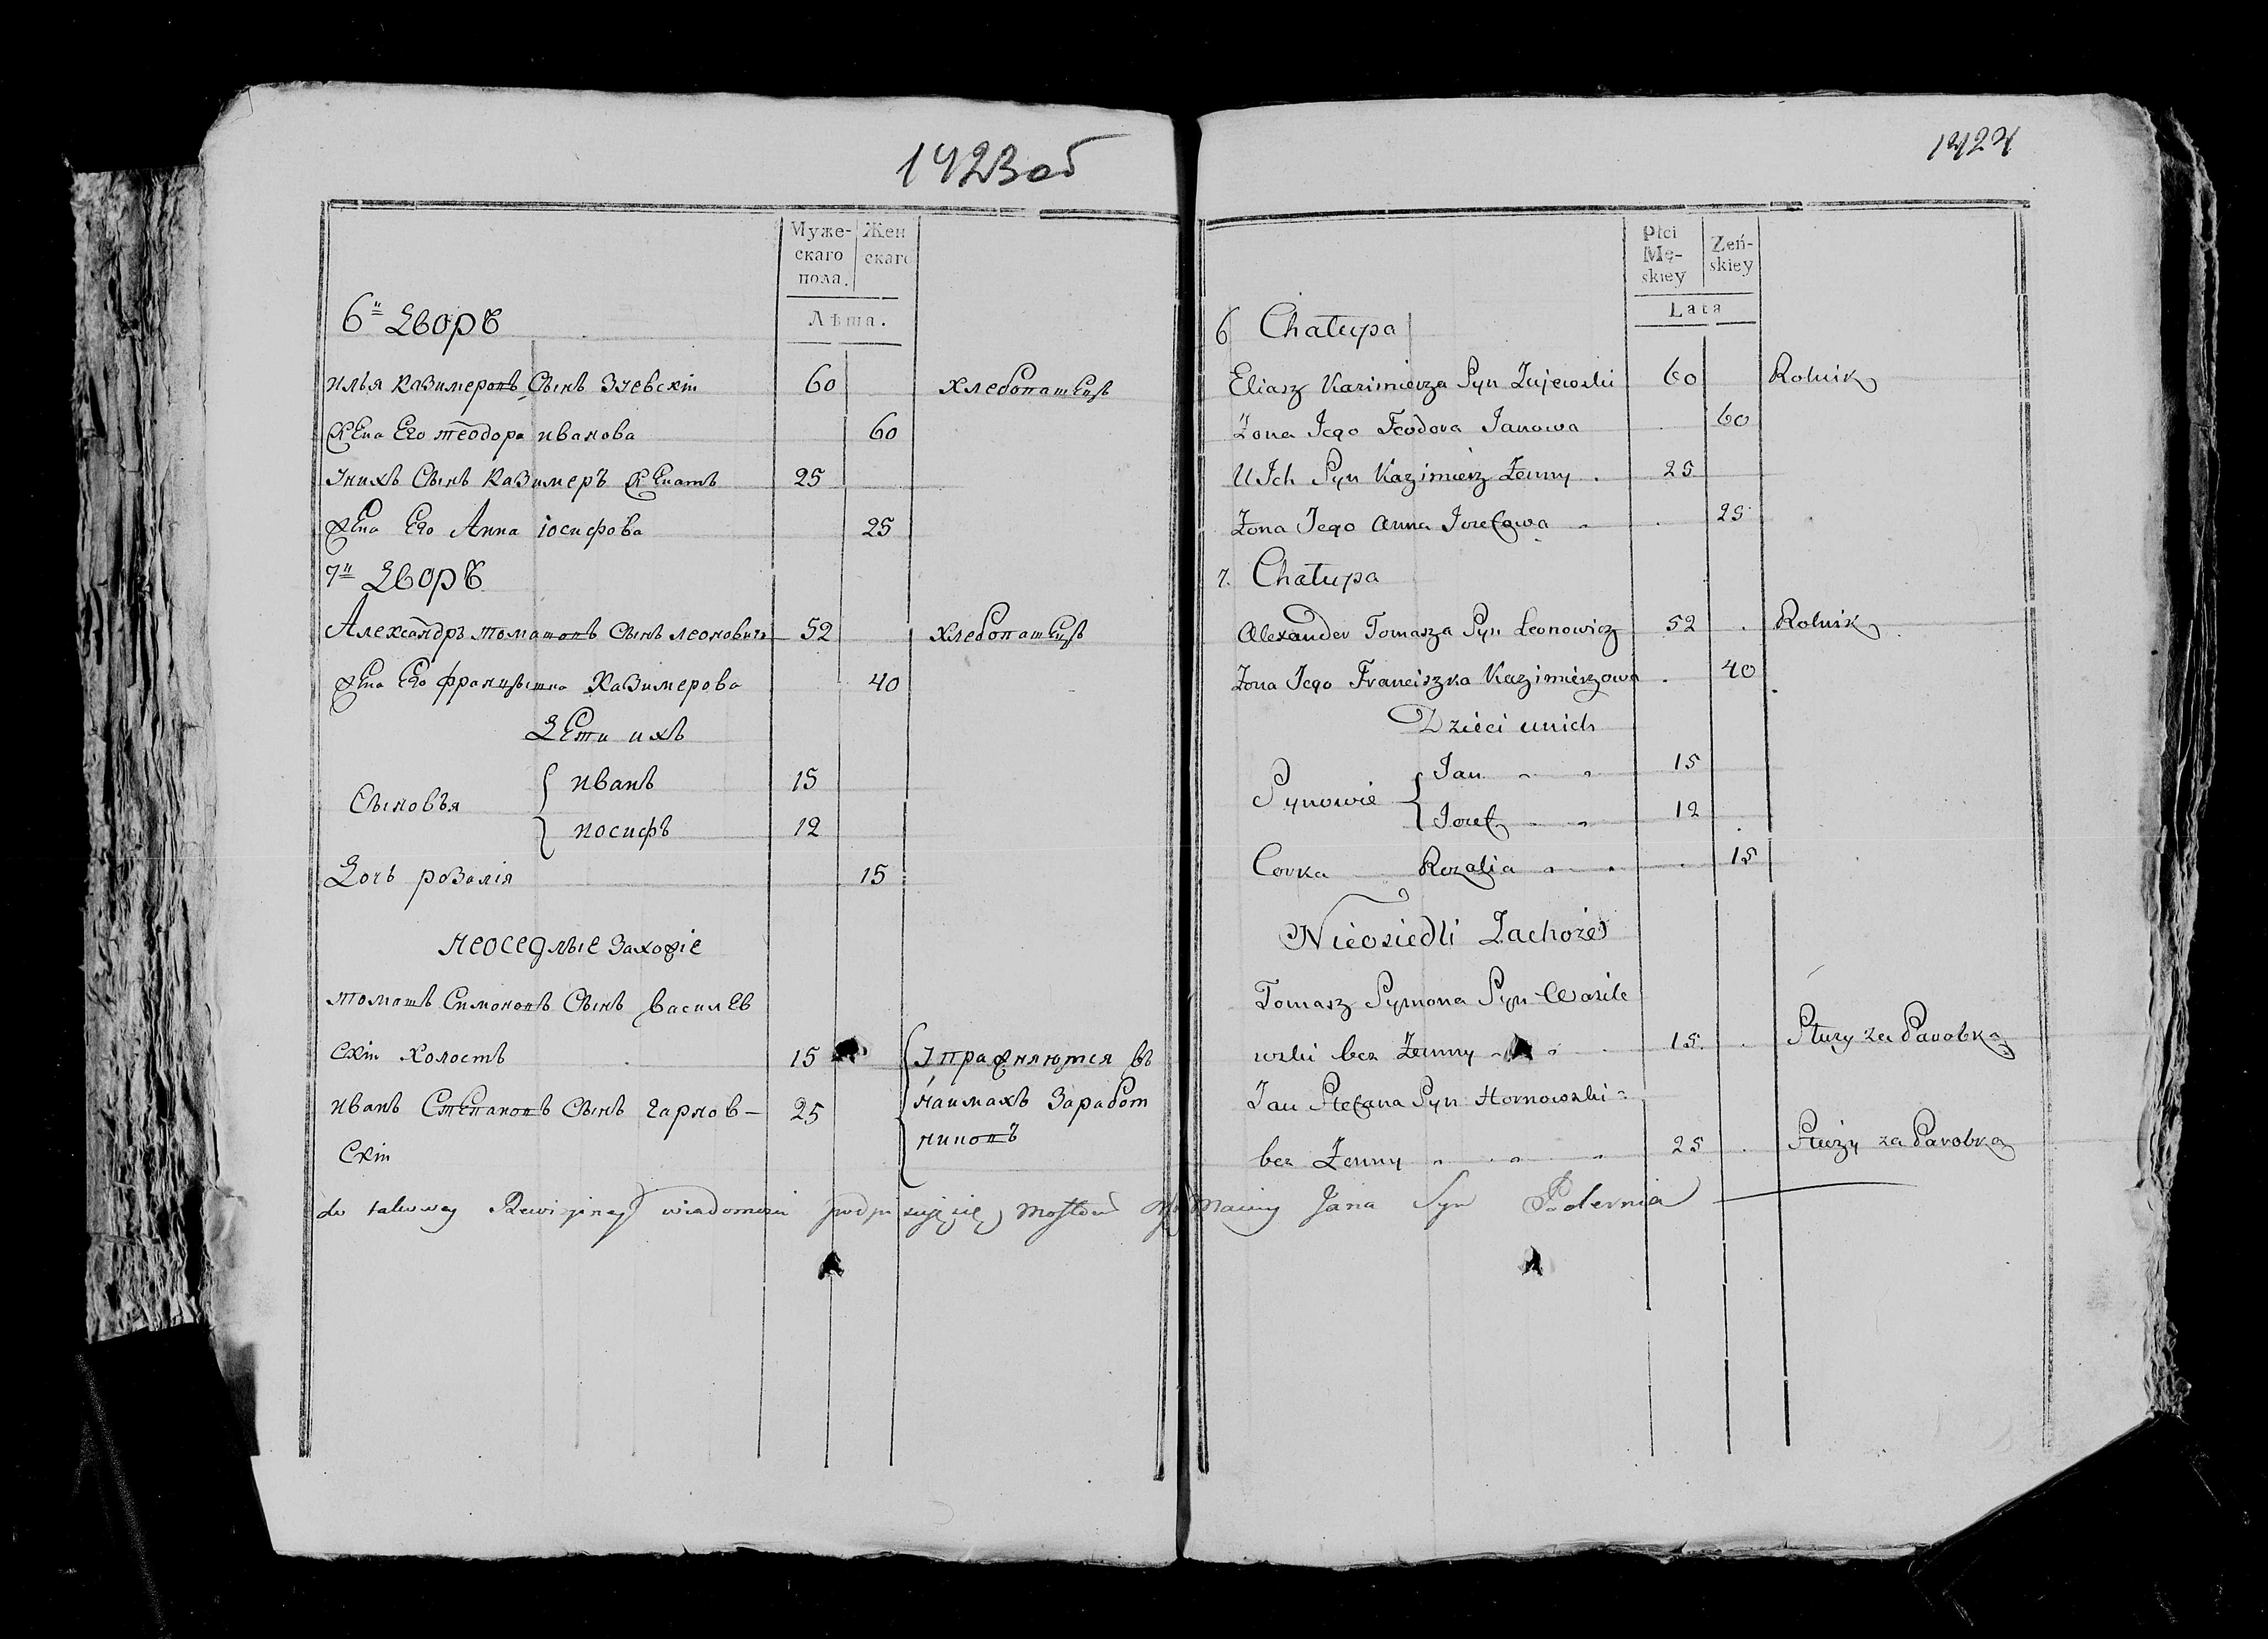 1423 об
Муже-
скаго
пола.
Жен
скаго
Лѣта.
6й Дворъ
Илья Казимеровъ Сынъ Зуевскій 60 Хлебопашецъ
Жена Его Теодора Иванова 60
Унихъ Сынъ Казимеръ Женатъ 25
Жена Его Анна Іосифова 25
7й Дворъ
Александръ Томашовъ Сынъ Леоновичъ 52 Хлебопашецъ
Жена Его Францышка Казимерова 40
Дети ихъ
Сыновья { Иванъ 15
Иосифъ 12
Дочь розалія 15
Неоседлые Захожіе
Томашъ Симоновъ Сынъ Василев
скій Холостъ 15 Упражняются въ
Иванъ Степановъ Сынъ Гарнов- 25 Наимахъ Заработ
скій никовъ
1424
Płci
Mę-
skiey
Zeń-
skiey
Lata
6 Chałupa
Eliasz Kazimierza Syn Zujewski 60 Rolnik
Żona Jego Teodora Janowa 60
U Ich Syn Kazimierz Żenny 25
Żona Jego Anna Jozefowa 25
7. Chałupa
Alexander Tomasza Syn Leonowicz 52 Rolnik
Żona Jego Franciszka Kazimierzowa 40
Dzieci unich
Synowie { Jan 15
Jozef 12
Corka Rozalia 15
Nieosiedli Zachożé
Tomasz Symona Syn Wasile
wski bez Żenny 15 Służy za Parobka
Jan Stefana Syn Hornowski
bez Żenny 25 Służy za Parobka
do takowey Rewizyney wiadomości podpisuję się Jana Syn